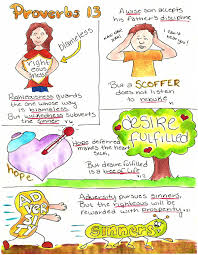 Proverbs 13
blameless
righteousness
Righteousness guards
the one whose way
is blameless.
But wickedness subverts
the sinner
A wise son accepts
his father's discipline
can't hear
you!
But a SCOFFER
does not listen
to rebuke
hope
Hope deferred
makes the heart
sick,
But desire fulfilled
is a tree of Life
desire
fulfilled
ADVERSITY
Adversity pursues sinners,
But the righteous will be
rewarded with prosperity
sinners